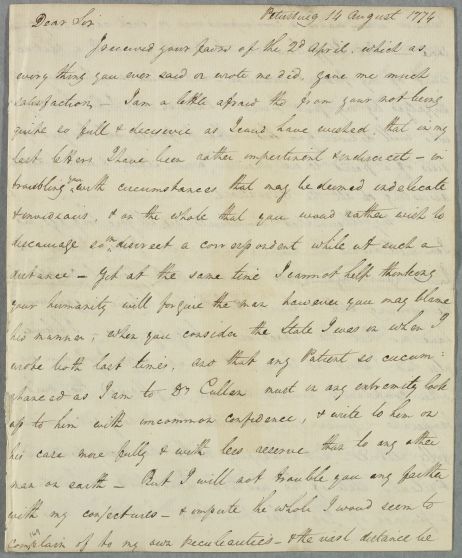 Petersburg 14 August 1774
Dear Sir
I received your favor of the 2d April, which as
every thing you ever said or wrote me did, gave me much
satisfaction – I am a little afraid tho from your not being
quite so full & decisive as I could have wished, that in my
last letters I have been rather impertinent & indiscreet – in
troubling you with circumstances that may be deemed indelicate
& invidious, & on the whole that you would rather wish to
discourage so indiscreet a correspondent while at such a
distance – Yet at the same time I cannot help thinking
your humanity will forgive the man however you may blame
his manner, when you consider the State I was in when I
wrote both last times, and that any Patient so circum:
:stanced as I am to Dr Cullen must in any extremity look
up to him with uncommon confidence, & write to him on
his case more fully & with less reserve than to any other
man on earth – But I will not trouble you any farther
with my conjectures – & impute the whole I would seem to
complain of to my own peculiarities – & the vast distance be